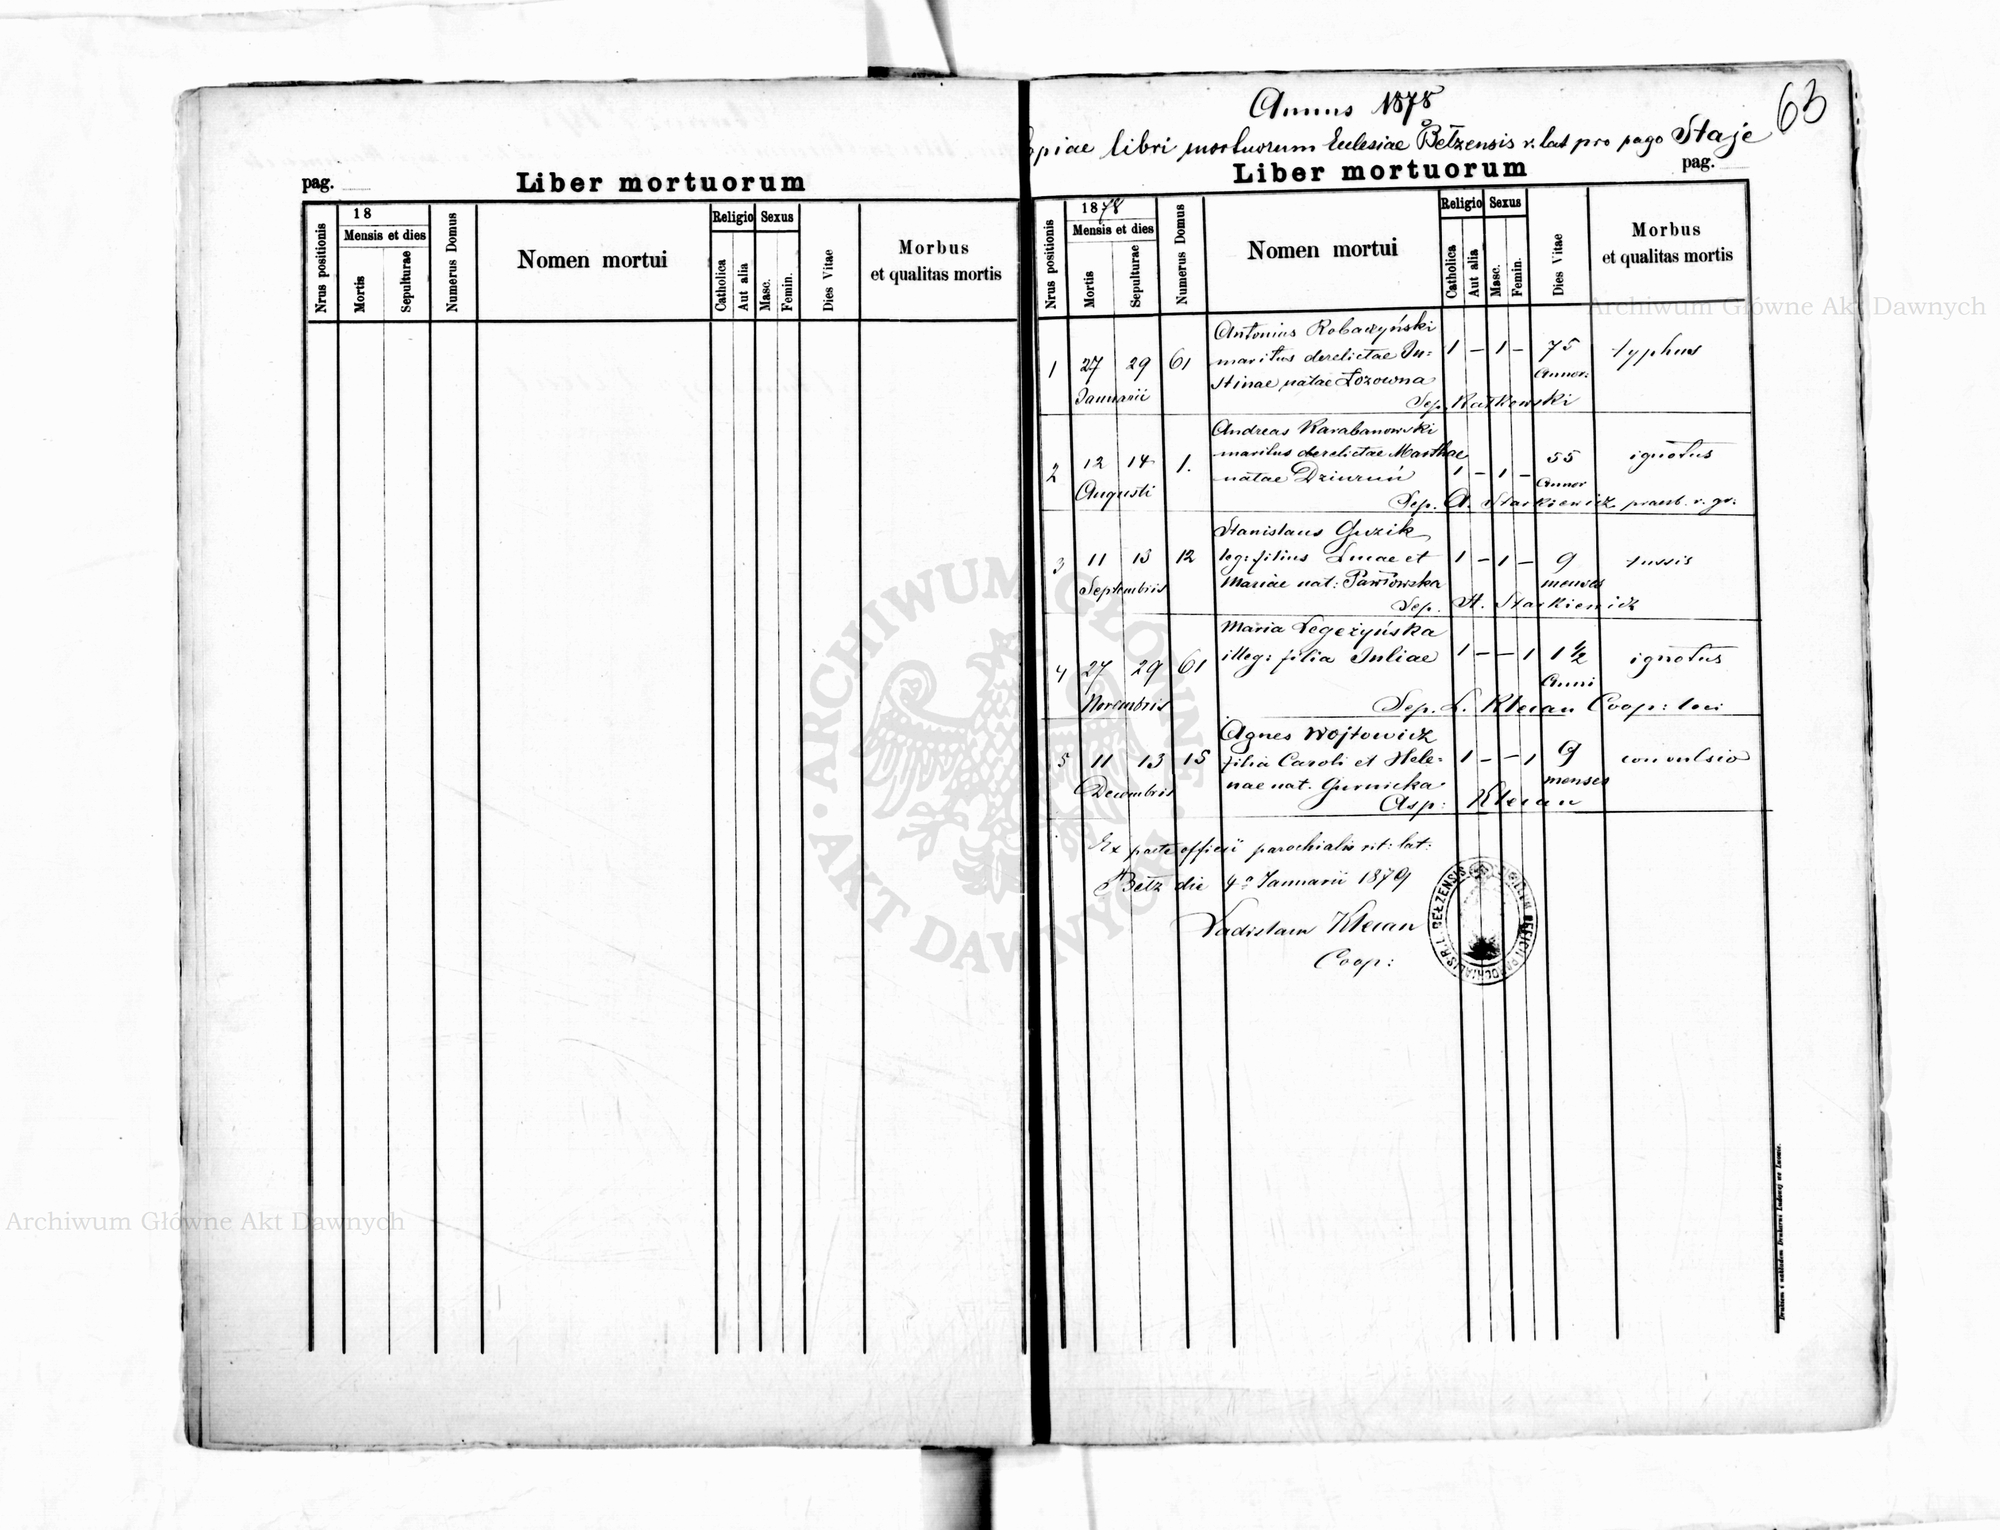 pag.
Liber mortuorum
Nrus positionis
18
Mensis et dies
Mortis
Sepulturae
Numerus Domus
Nomen mortui
Religio
Catholica
Aut alia
Sexus
Masc.
Femin.
Dies Vitae
Morbus
et qualitas mortis
63
Annus 1878
Copiae libri mortuorum Ecclesiae Bełzensis r. lat pro pago Staje
Liber mortuorum
pag.
Nrus positionis
1878
Mensis et dies
Mortis
Sepulturae
Numerus Domus
Nomen mortui
Religio
Catholica
Aut alia
Sexus
Masc.
Femin.
Dies Vitae
Morbus
et qualitas mortis
Antonius Robaczyński
1 27 29 61 maritus derelictae Ju= 1 – 1 – 75 typhus
Januarii stinae natae Łozowna Annor:
Sep. Rutkowski
Andreas Karabanowski
2 12 14 1. maritus derelictae Marthae 1 – 1 – 55 ignotus
Augusti natae Dziurun Annor
Sep. A. Starkiewicz praesb. r. gr.
Stanislaus Guzik
3 11 13 12 leg: filius Lucae et 1 – 1 – 9 tussis
Septembris Mariae nat: Pawłowska menses
Sep. A. Starkiewicz
Maria Legeżyńska
4 27 29 61 illeg: filia Juliae 1 – – 1 1 1/2 ignotus
Novembris Anni
Sep. L. Kłecan Coop: loci
Agnes Wojtowicz
5 11 13 15 filia Caroli et Hele= 1 – – 1 9 convulsio
Decembris nae nat. Gurnicka menses
Asp: Kłecan
Ex parte officii parochialis rit: lat:
Bełz die 4a Januarii 1879
Ladislaus Kłecan
Coop:
SIGILLUM OFFICII PAROCHIALIS R. L. BEŁZENSIS
Drukiem i nakładem Drukarni Ludowej we Lwowie.
ARCHIWUM GŁÓWNE AKT DAWNYCH
Archiwum Główne Akt Dawnych
Archiwum Główne Akt Dawnych